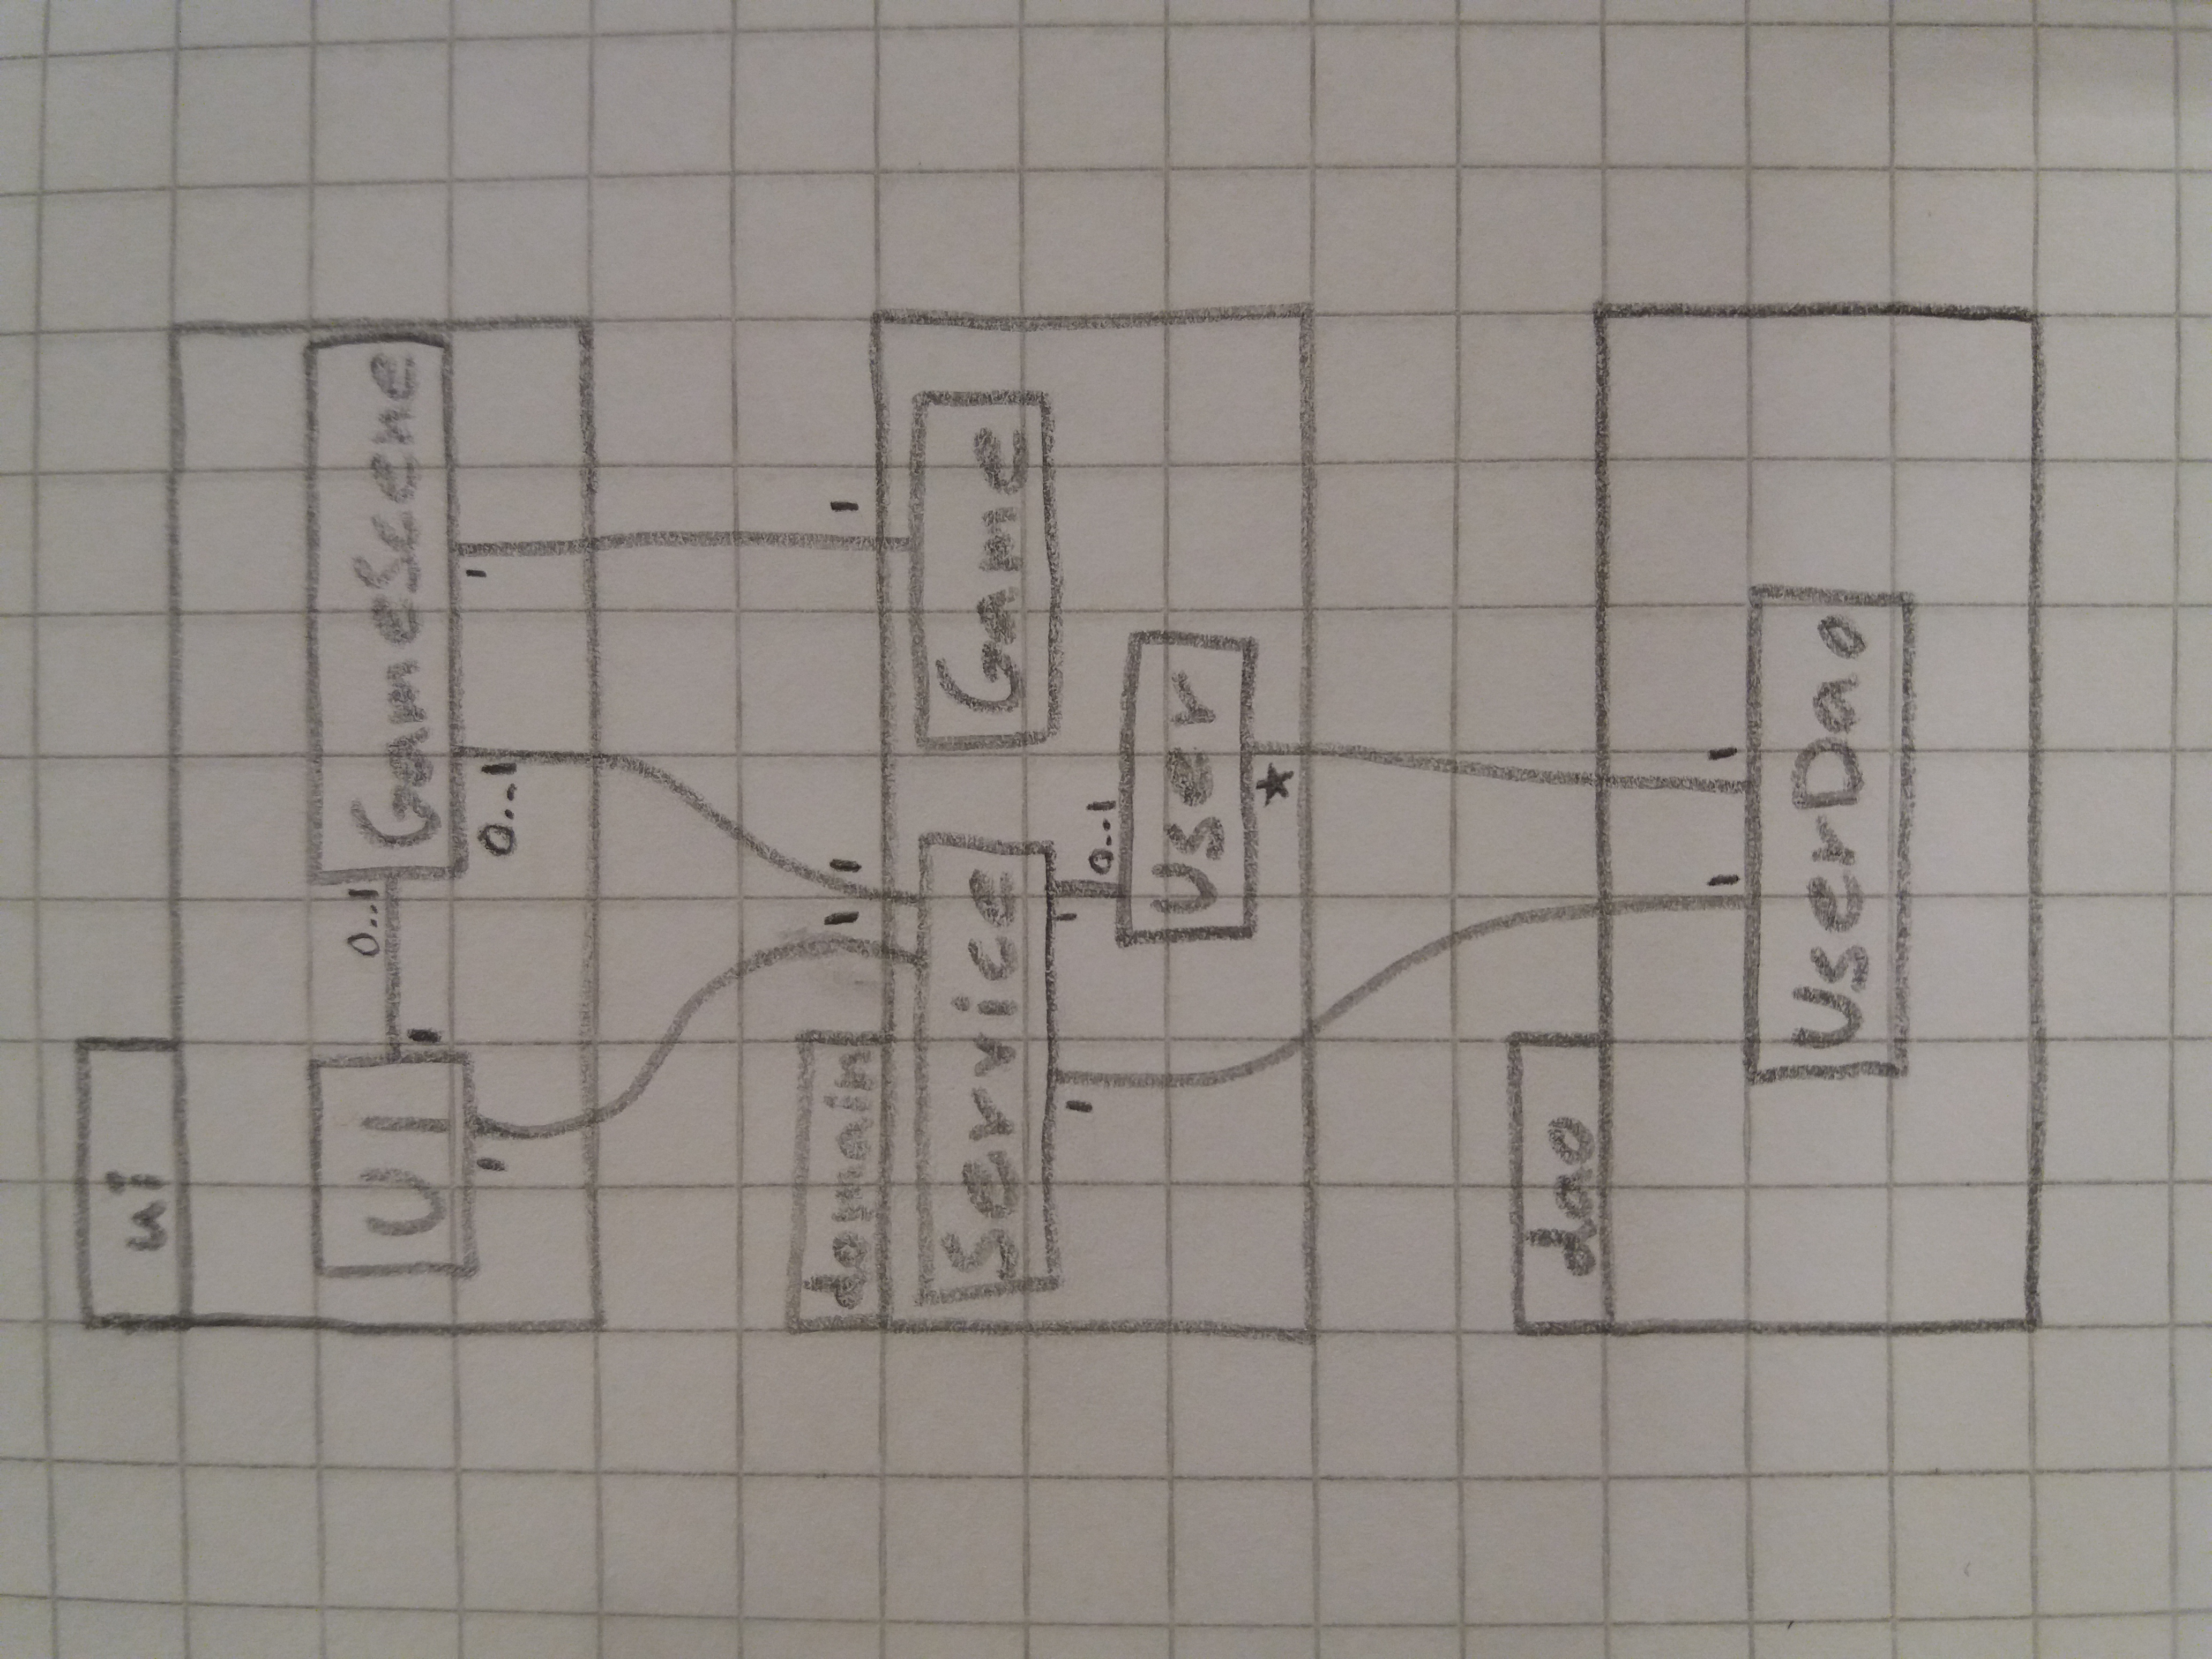 ui
UI 1 0..1 GameScene
1 0..1 1
domain 1 1 1
Service Game
1 1 0..1
User
*
dao
1 1
UserDao